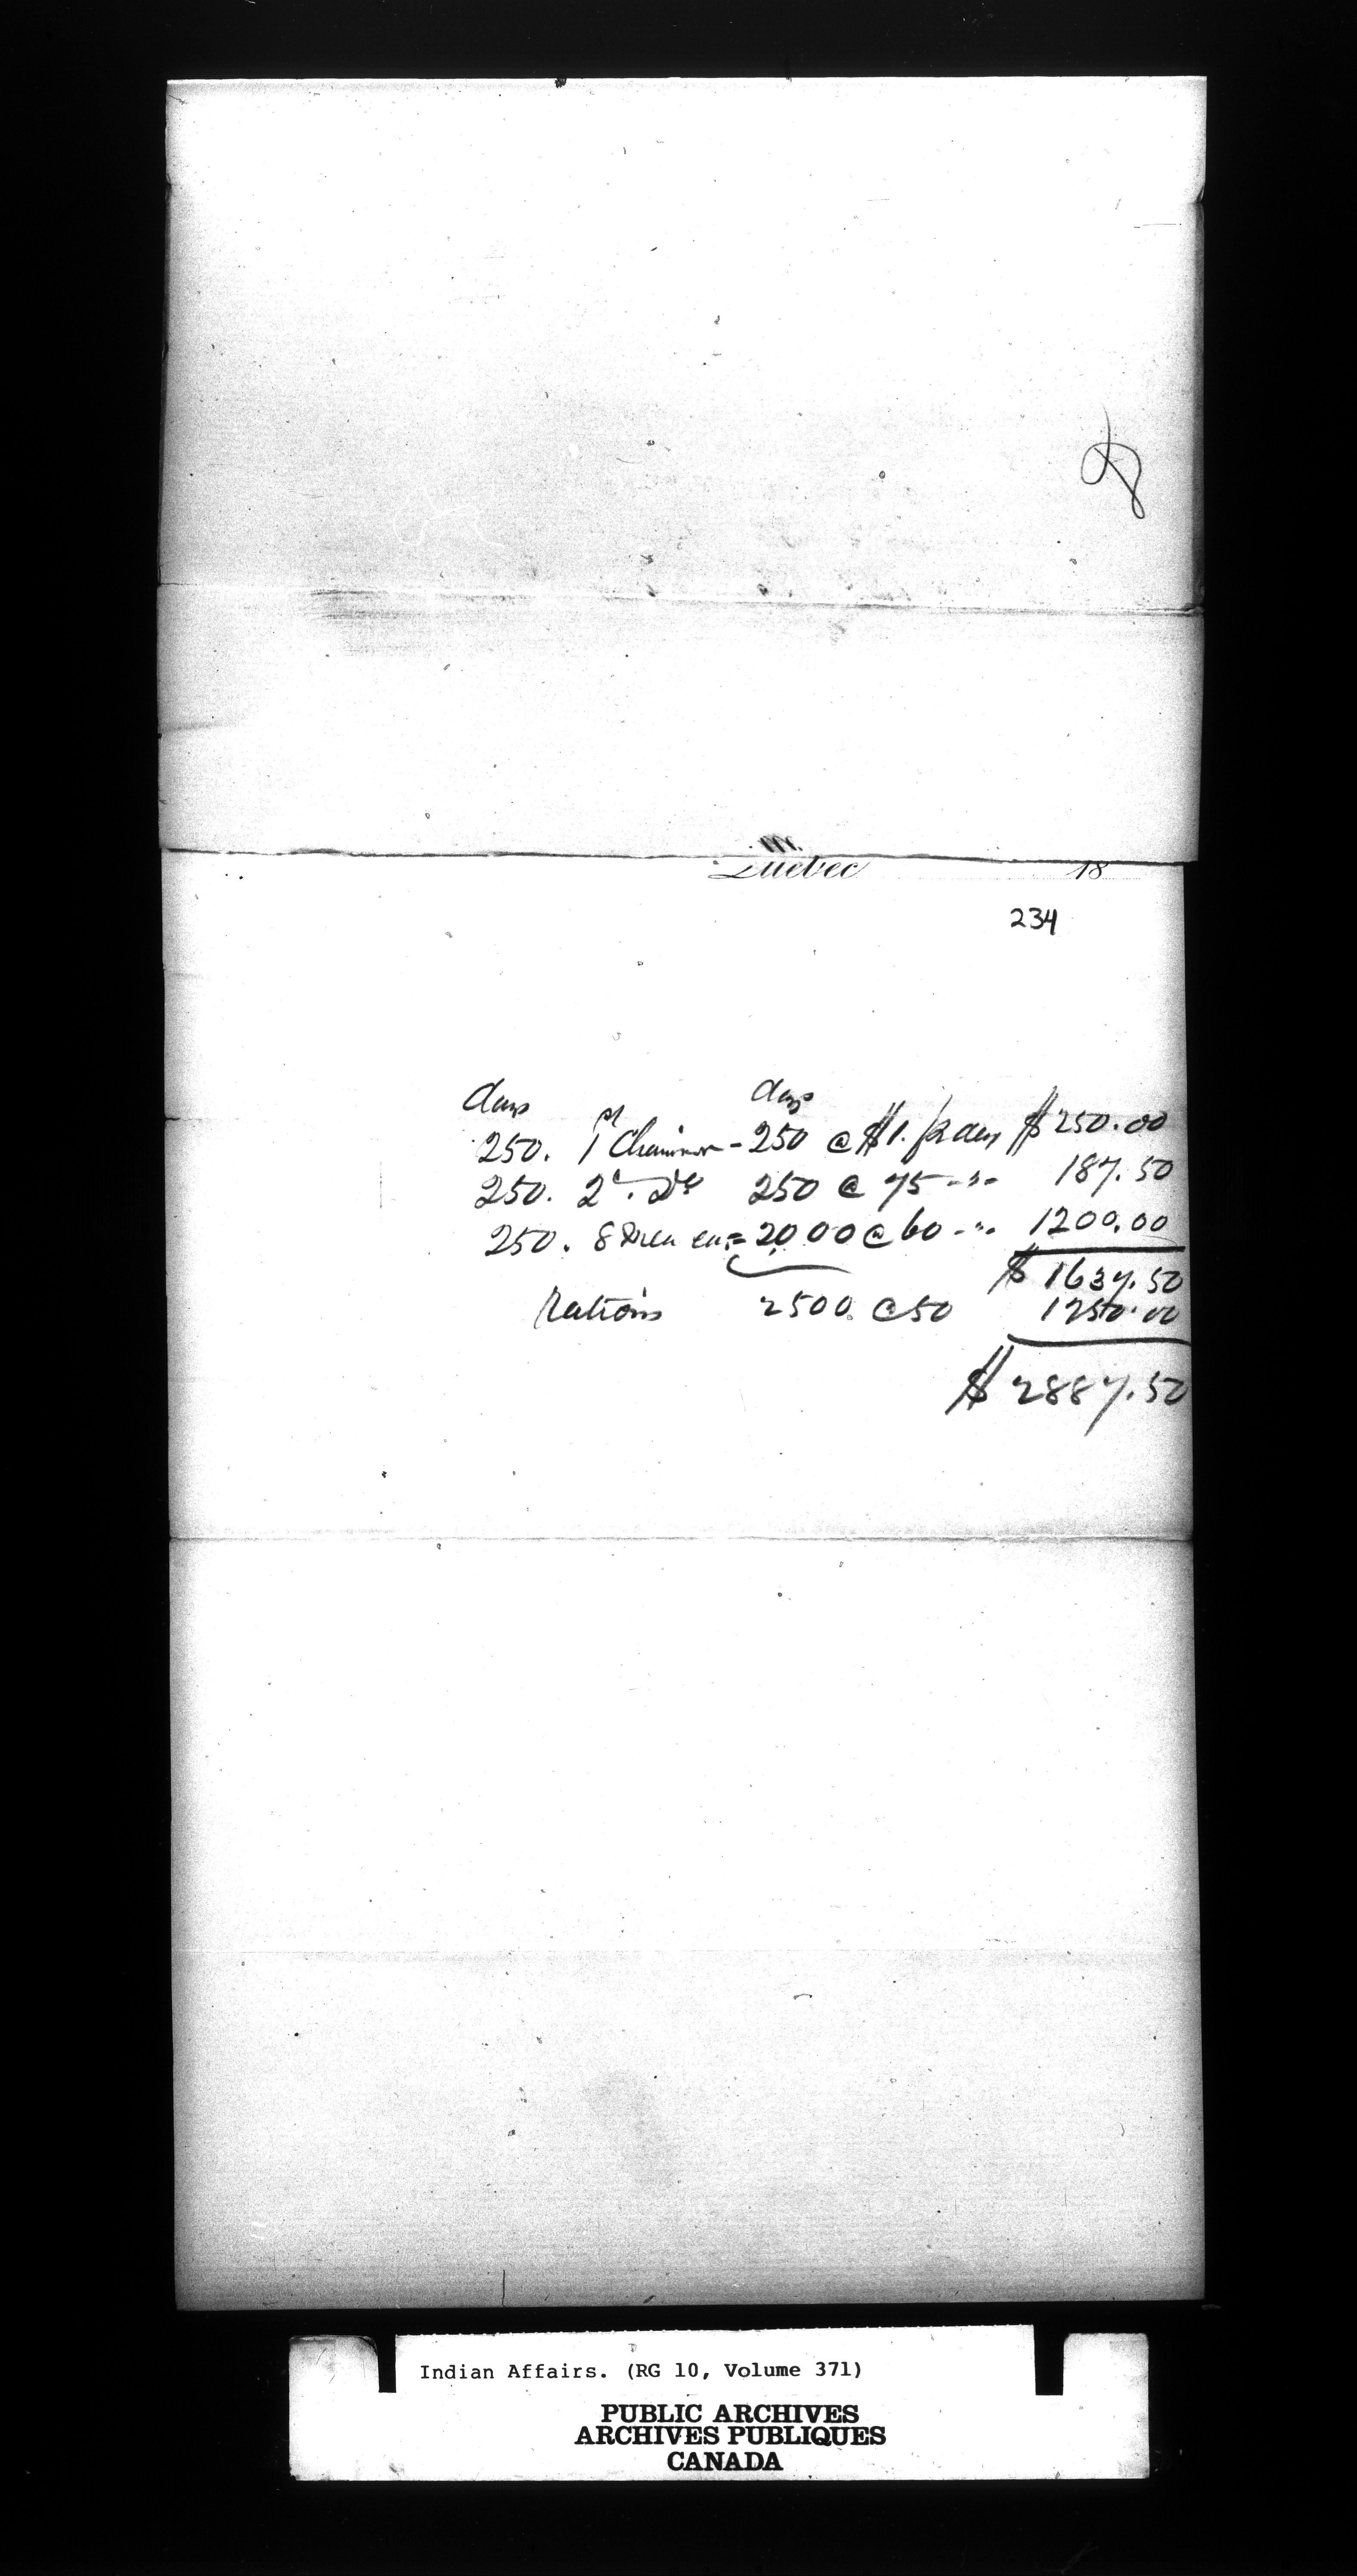 Quebec 18
234
days days
250. 1st Chainman - 250 @ $1. pr day $250.00
250. 2d. Do 250 @ 75 - " - 187.50
250. 8 Men ea. = 2000 @ 60 - " - 1200.00
$ 1637.50
Rations 2500. @ 50 1250.00
$ 2887.50
Indian Affairs. (RG 10, Volume 371)
PUBLIC ARCHIVES
ARCHIVES PUBLIQUES
CANADA